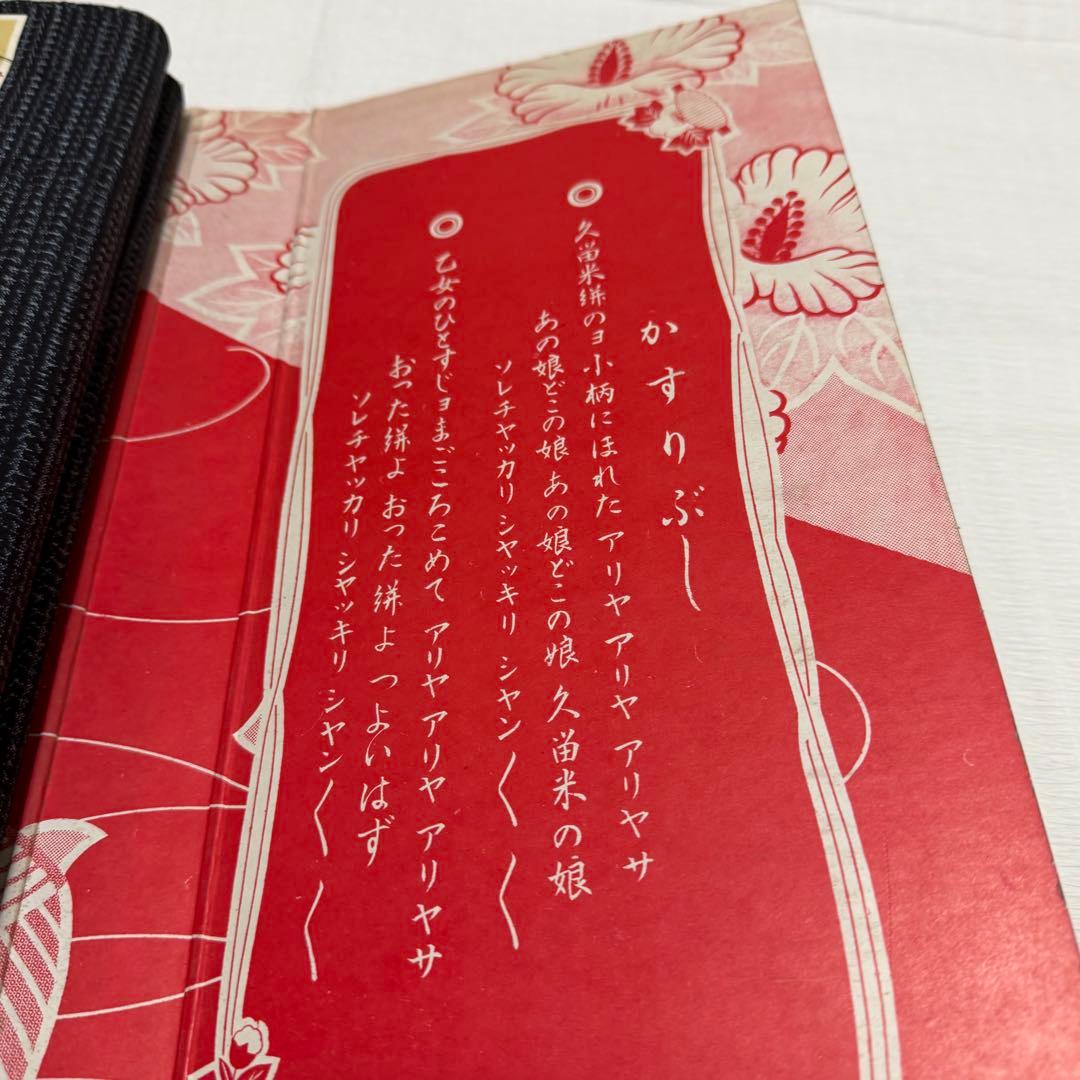 かすりぶし
◎ 久留米絣のヨ小柄にほれた アリヤ アリヤ アリヤサ
あの娘どこの娘 あの娘どこの娘 久留米の娘
ソレチャッカリ シャッキリ シャン〱〱
◎ 乙女のひとすじョまごころこめて アリヤ アリヤ アリヤサ
おった絣よ おった絣よ つよいはず
ソレチャッカリ シャッキリ シャン〱〱